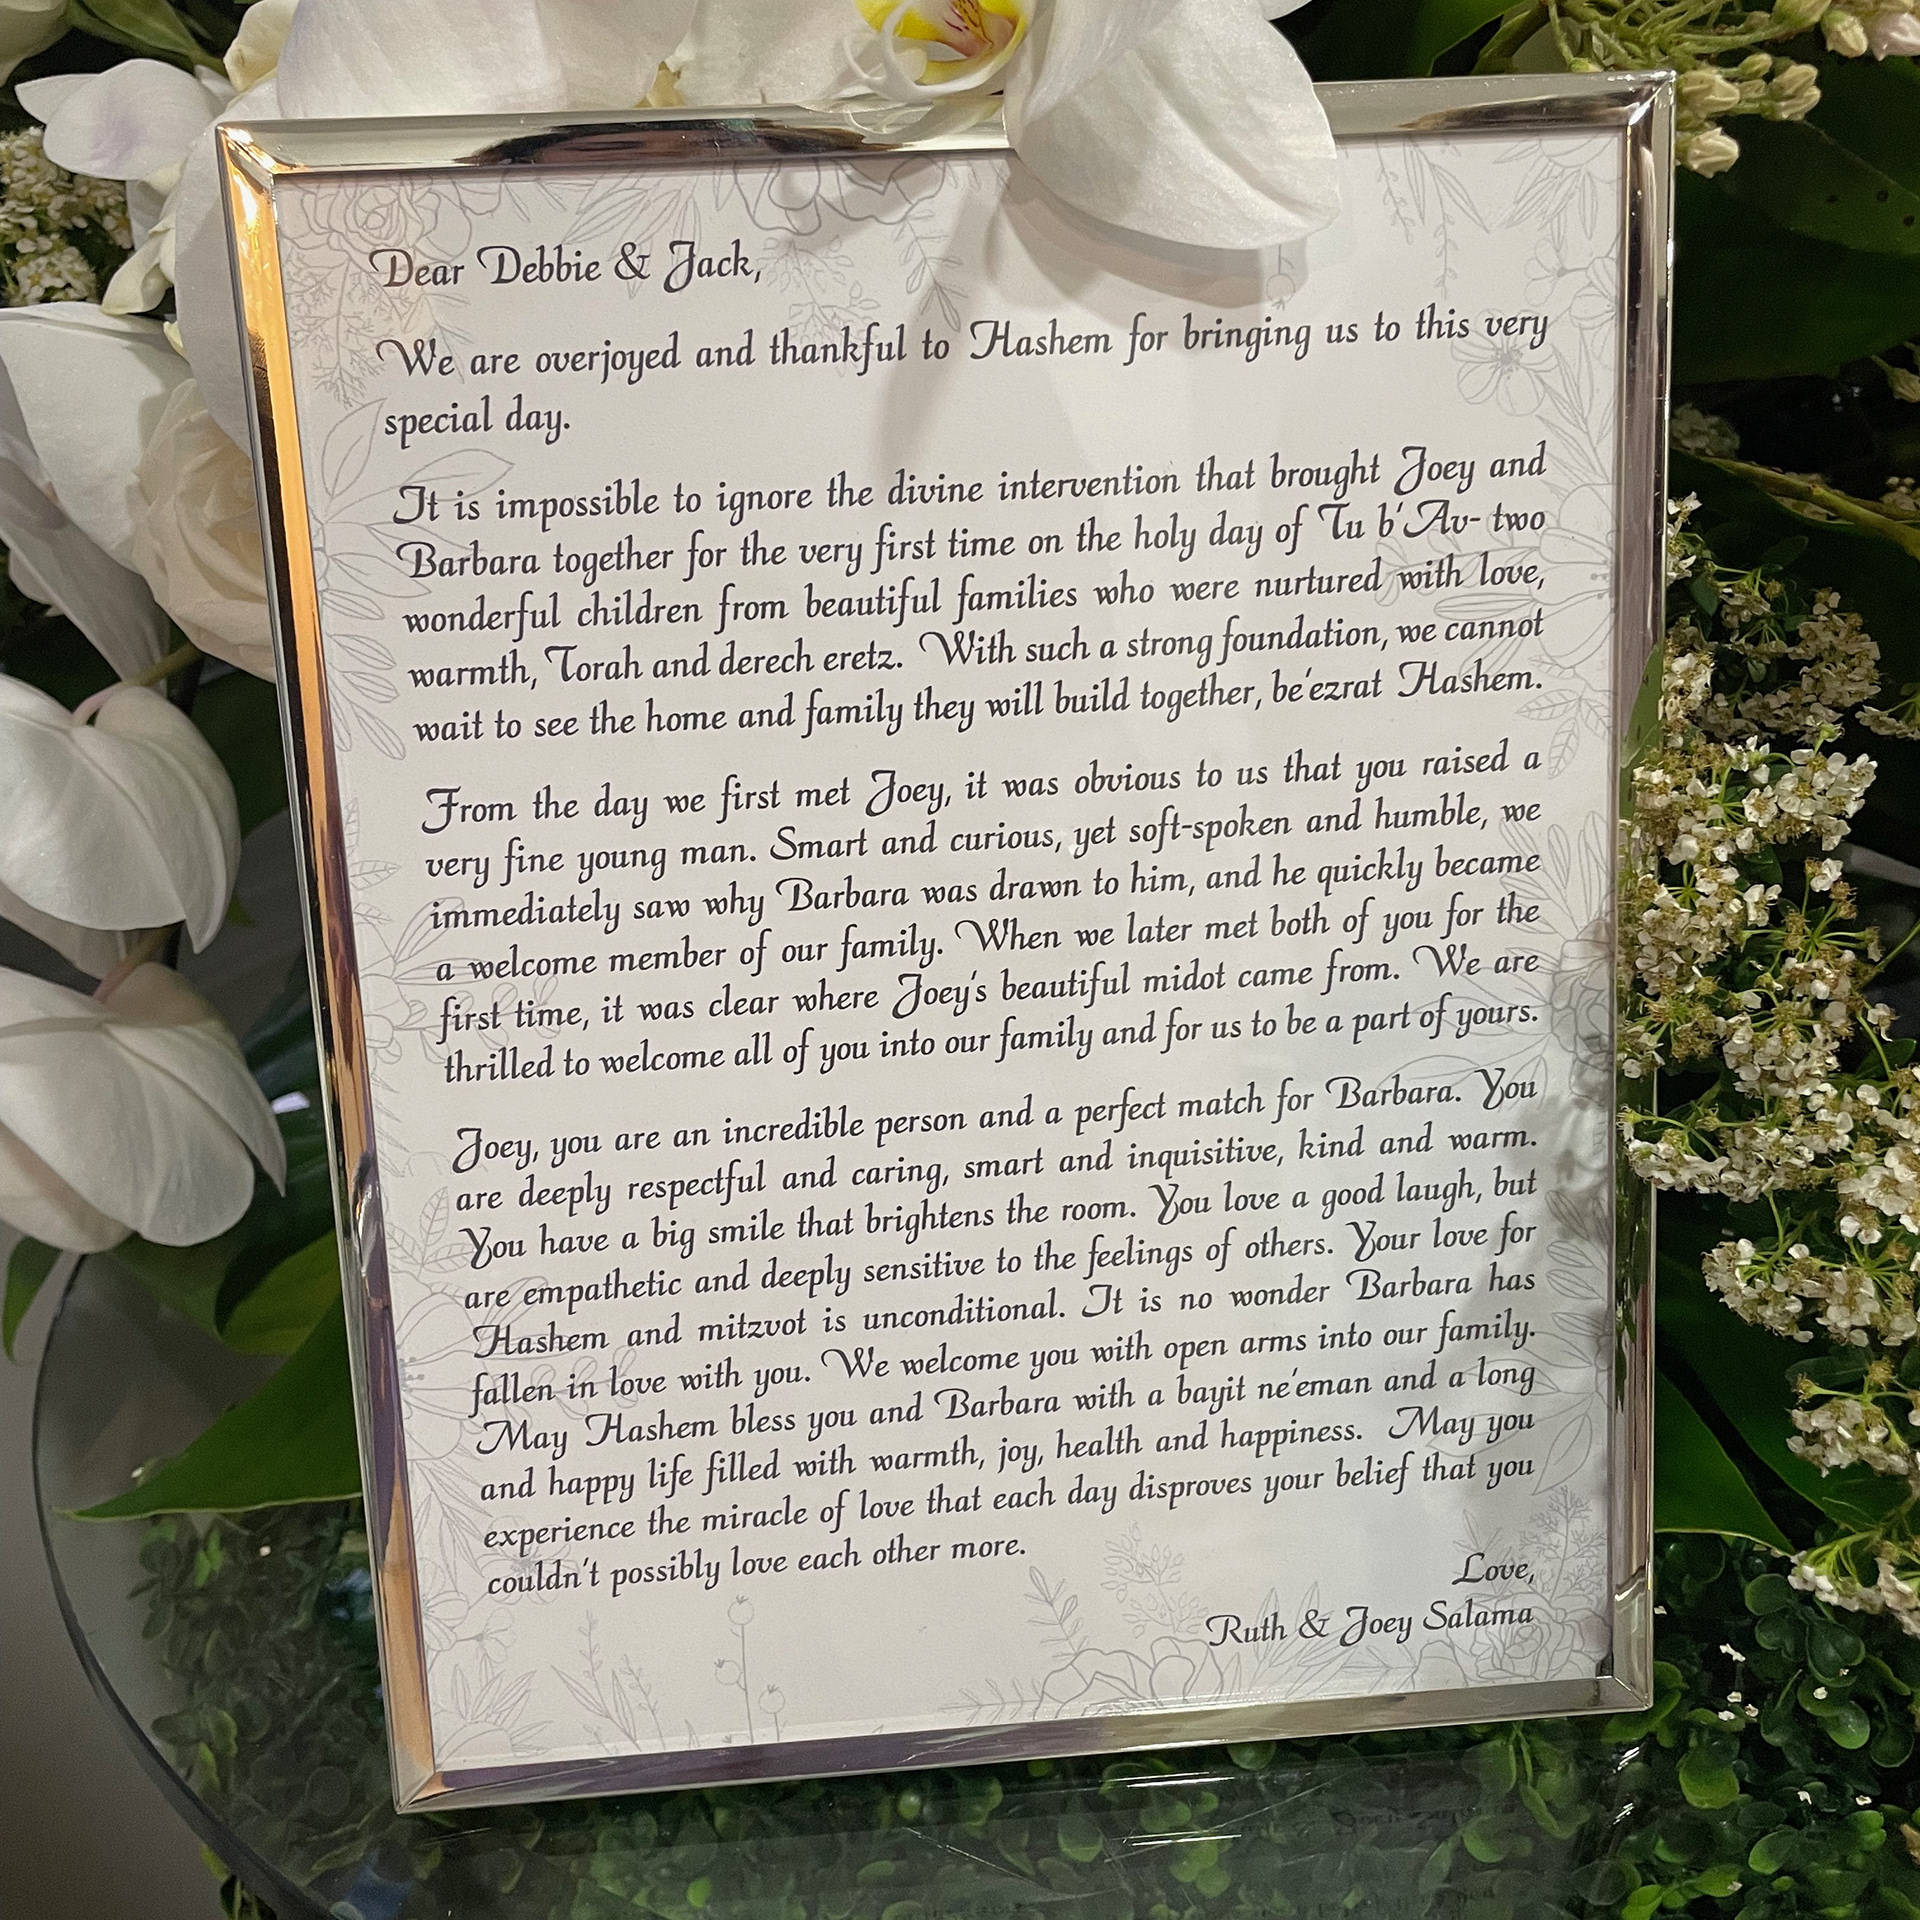 Dear Debbie & Jack,
We are overjoyed and thankful to Hashem for bringing us to this very
special day.
It is impossible to ignore the divine intervention that brought Joey and
Barbara together for the very first time on the holy day of Tu b'Av- two
wonderful children from beautiful families who were nurtured with love,
warmth, Torah and derech eretz. With such a strong foundation, we cannot
wait to see the home and family they will build together, be'ezrat Hashem.
From the day we first met Joey, it was obvious to us that you raised a
very fine young man. Smart and curious, yet soft-spoken and humble, we
immediately saw why Barbara was drawn to him, and he quickly became
a welcome member of our family. When we later met both of you for the
first time, it was clear where Joey's beautiful midot came from. We are
thrilled to welcome all of you into our family and for us to be a part of yours.
Joey, you are an incredible person and a perfect match for Barbara. You
are deeply respectful and caring, smart and inquisitive, kind and warm.
You have a big smile that brightens the room. You love a good laugh, but
are empathetic and deeply sensitive to the feelings of others. Your love for
Hashem and mitzvot is unconditional. It is no wonder Barbara has
fallen in love with you. We welcome you with open arms into our family.
May Hashem bless you and Barbara with a bayit ne'eman and a long
and happy life filled with warmth, joy, health and happiness. May you
experience the miracle of love that each day disproves your belief that you
couldn't possibly love each other more.
Love,
Ruth & Joey Salama